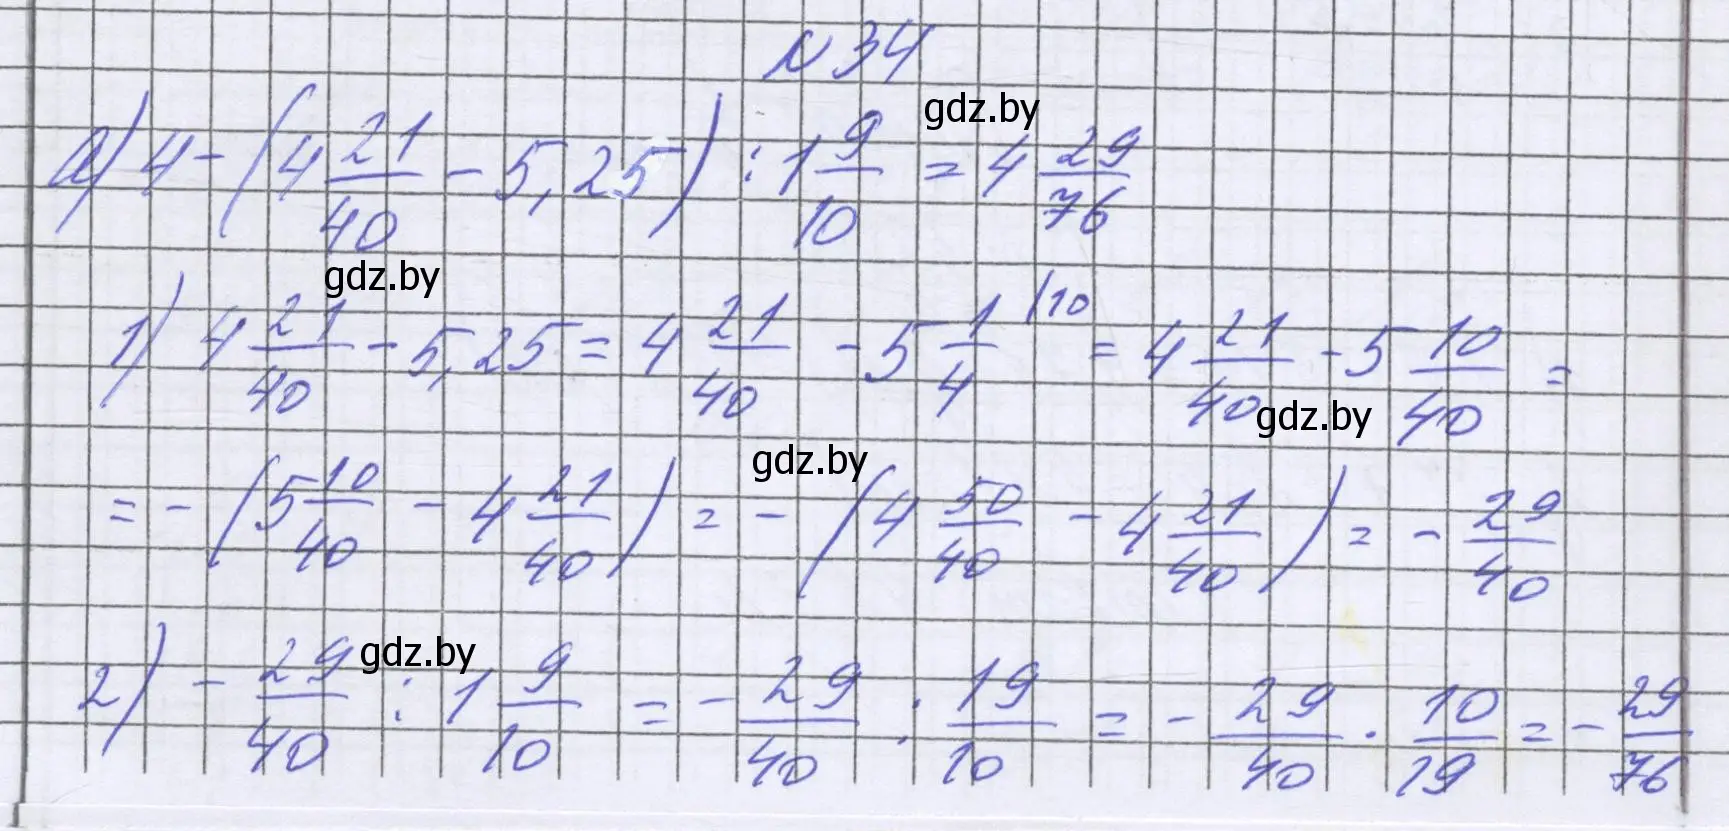 N 34
а) 4 - (4 21/40 - 5,25) : 1 9/10 = 4 29/76
gdz.by
1) 4 21/40 - 5,25 = 4 21/40 - 5 1/4 /10 = 4 21/40 - 5 10/40 =
gdz.by
gdz.by
= - (5 10/40 - 4 21/40) = - (4 50/40 - 4 21/40) = - 29/40
gdz.by
2) - 29/40 : 1 9/10 = - 29/40 : 19/10 = - 29/40 · 10/19 = - 29/76
gdz.by